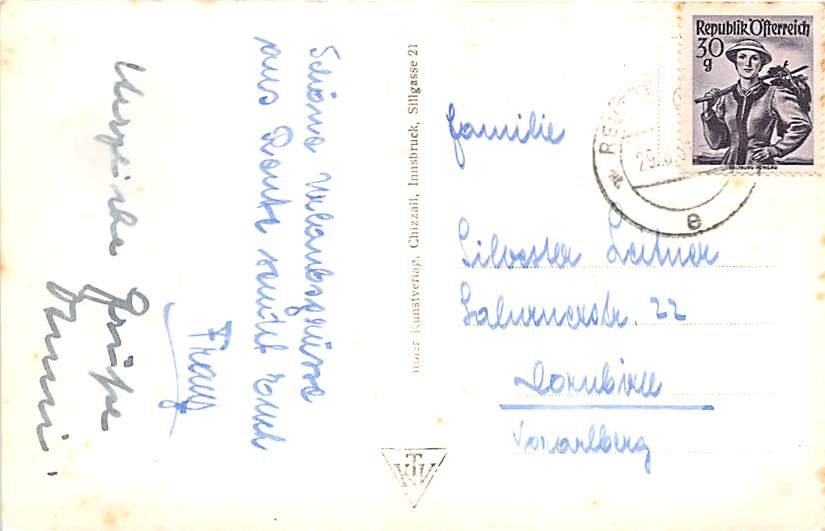 Schöne Urlaubsgrüsse
aus Reutte sendet Euch
Franz
Herzliche Grüße
Tiroler Kunstverlag, Chizzali, Innsbruck, Sillgasse 21
KTV
Republik Österreich
30
g
SALZBURG PONGAU
e
Familie
Silvester Leitner
Salurnerstr. 22
Dornbirn
Vorarlberg